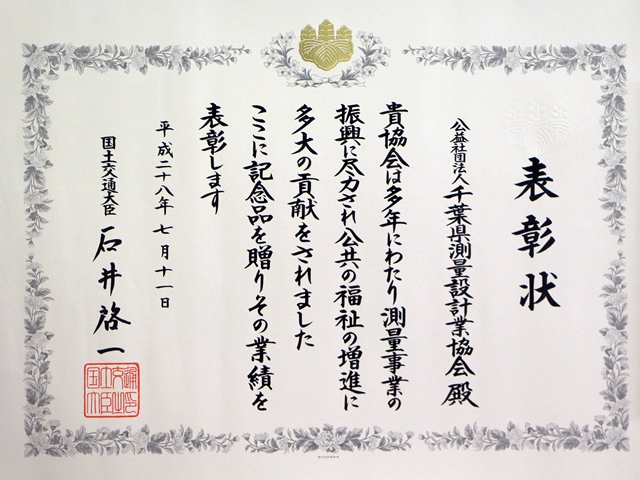 表彰状
公益社団法人千葉県測量設計業協会殿
貴協会は多年にわたり測量事業の
振興に尽力され公共の福祉の増進に
多大の貢献をされました
ここに記念品を贈りその業績を
表彰します
平成二十八年七月十一日
国土交通大臣 石井啓一
国土交通大臣之印